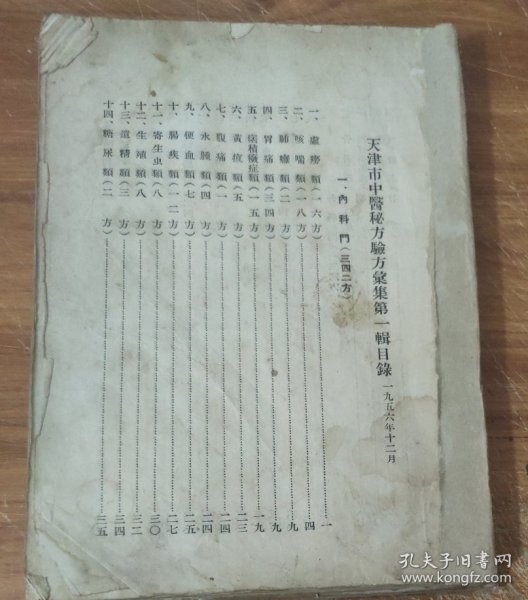 天津市中醫秘方驗方彙集第一輯目錄 一九五六年十二月
一、內科門(三四二方)
一、虛癆類(一六方)…………一
二、咳喘類(一八方)…………四
三、肺癰類(二 方)…………九
四、胃痛類(三四方)…………九
五、積癥症類(一五方)…………一九
六、黃疸類(五 方)…………二三
七、腹痛類(一 方)…………二四
八、水腫類(四 方)…………二四
九、便血類(七 方)…………二五
十、腸疾類(一二方)…………二七
十一、寄生虫類(八 方)…………三〇
十二、生殖類(八 方)…………三二
十三、遺精類(三 方)…………三四
十四、糖尿類(二 方)…………三五
孔夫子旧书网
www.kongfz.com